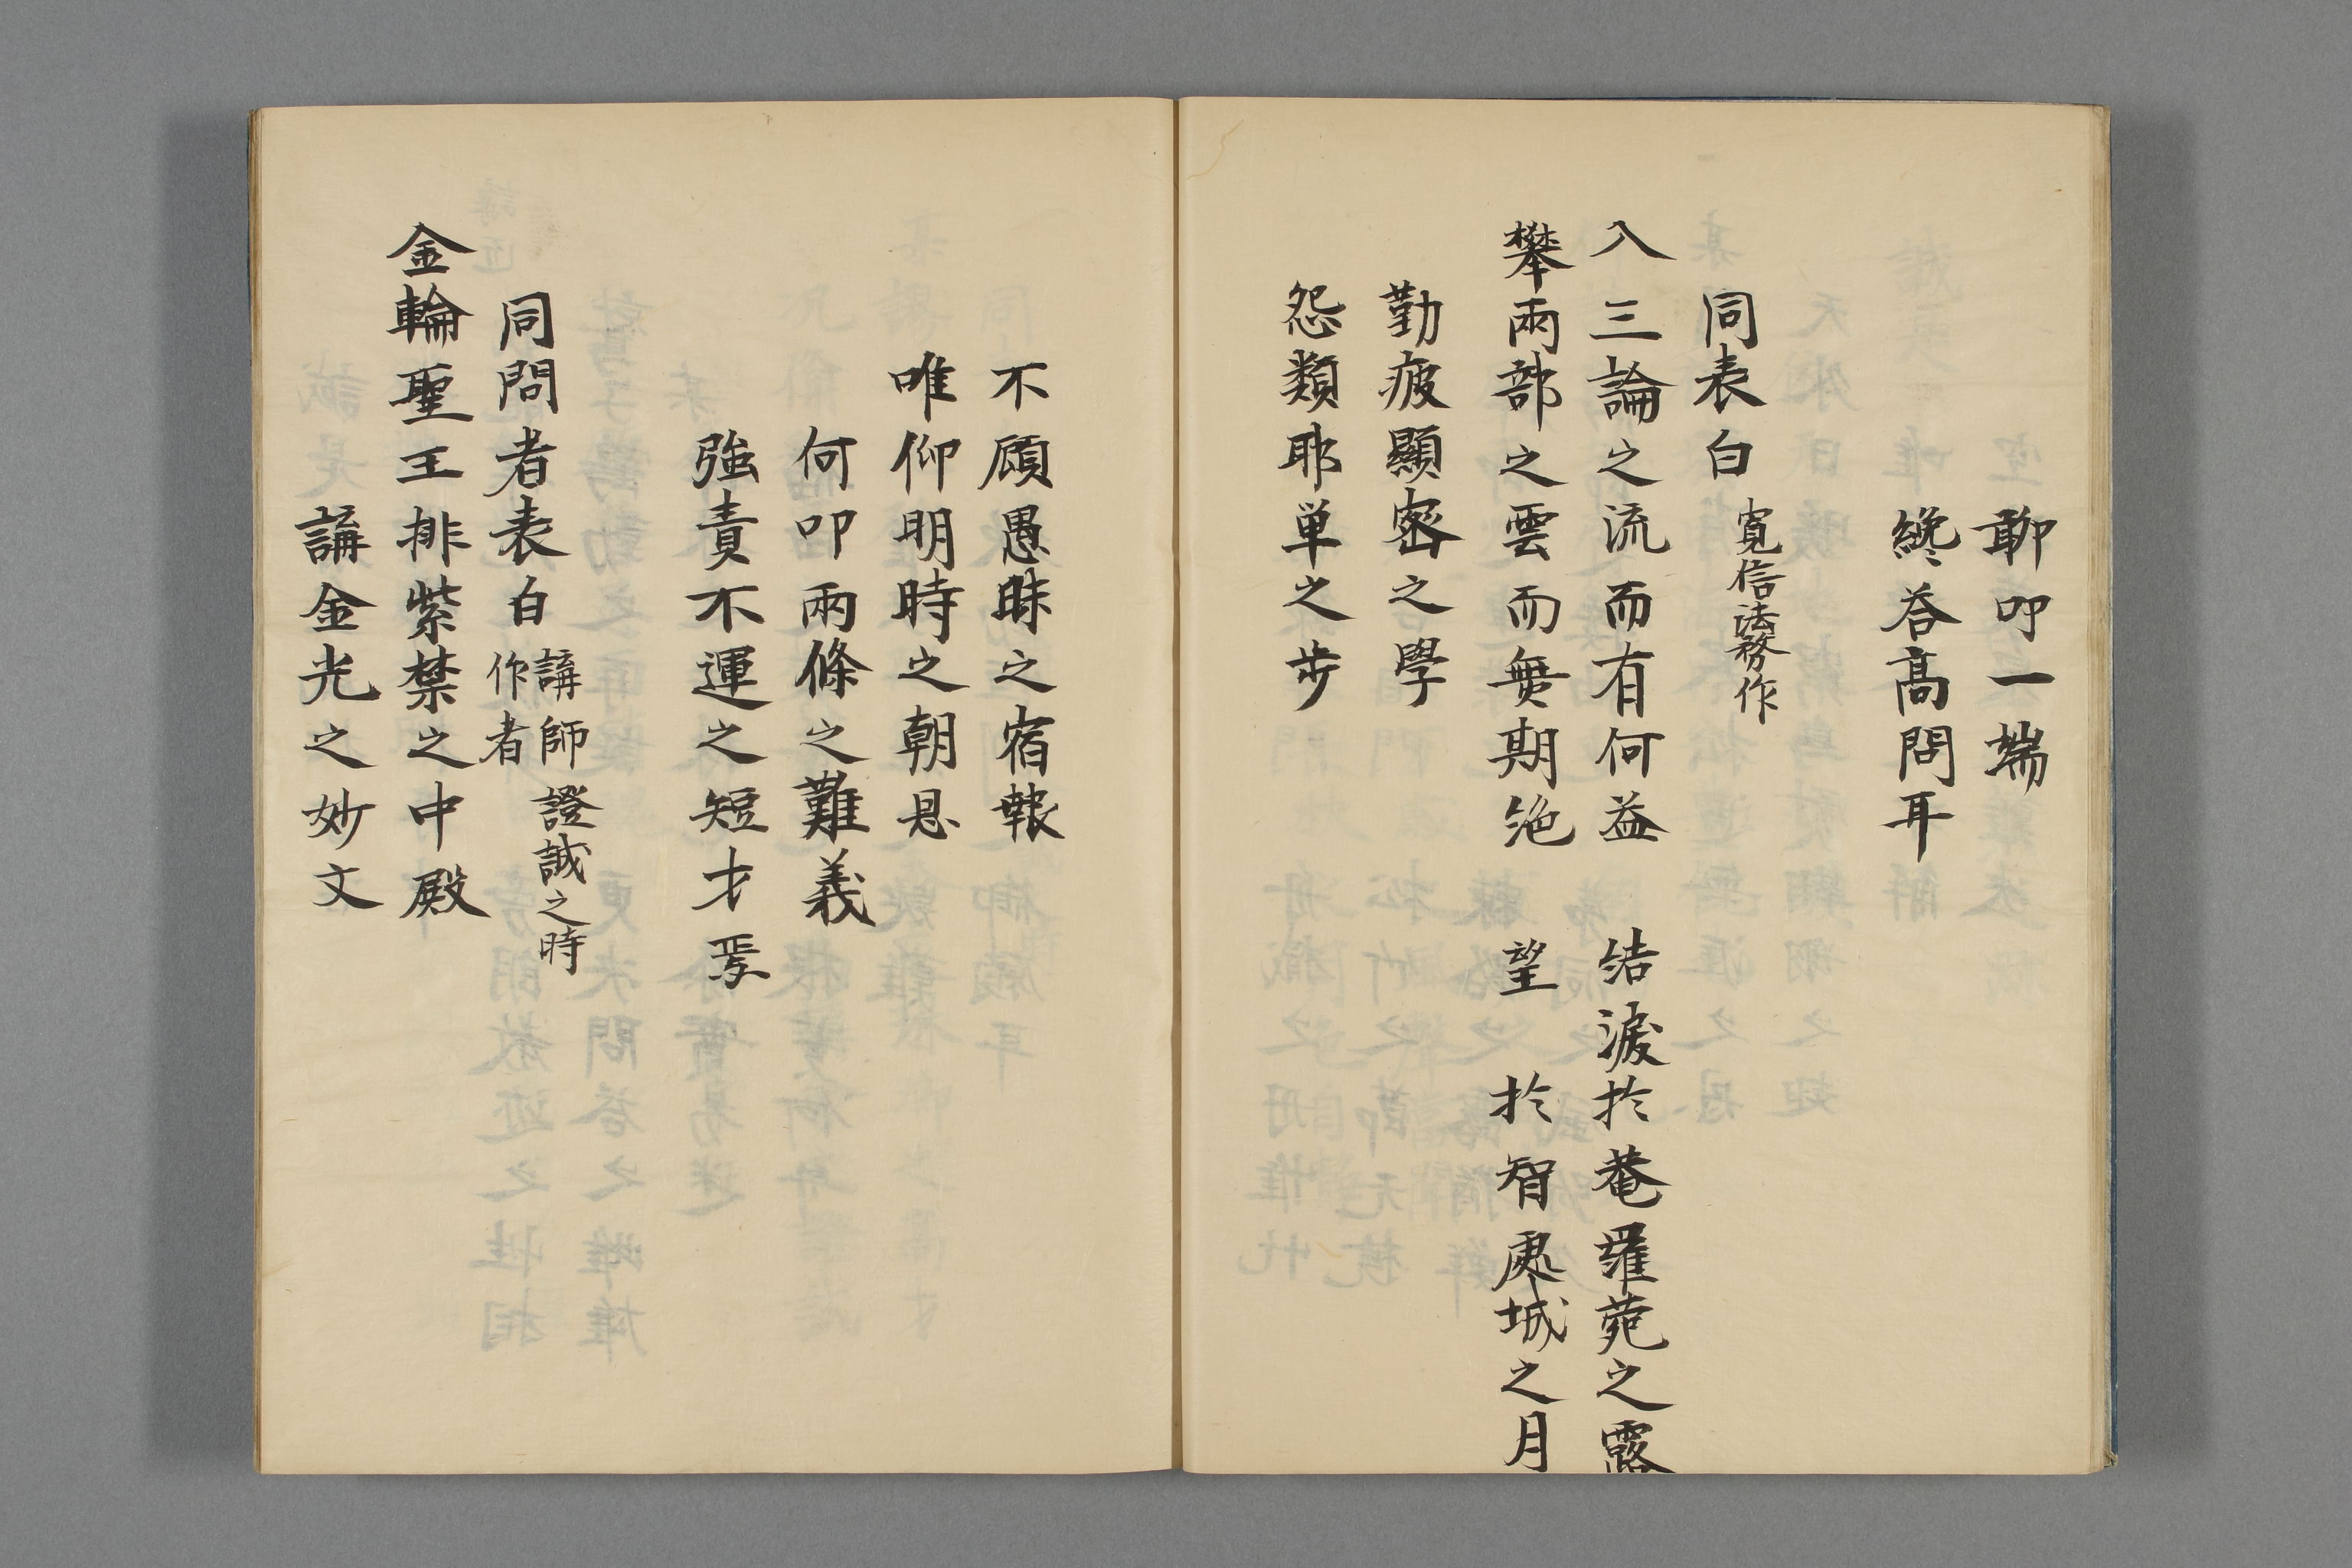 聊叩一端
纔答高問耳
同表白 寛信法務作
入三論之流而有何益 結淚於菴羅菀之露
攀兩部之雲而無期絶 望於智處城之月
勤疲顯密之學
怨類耶単之步
不顧愚昧之宿報
唯仰明時之朝恩
何叩兩條之難義
強責不運之短才焉
同問者表白 講師證誠之時
作者
金輪聖王排紫禁之中殿
講金光之妙文